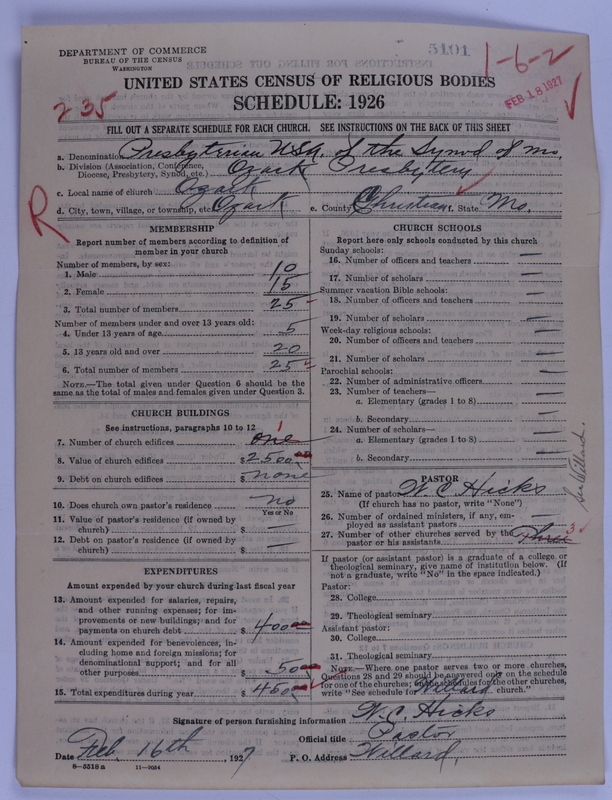 DEPARTMENT OF COMMERCE
BUREAU OF THE CENSUS
WASHINGTON
5101
1-6-2
235
FEB 18 1927
UNITED STATES CENSUS OF RELIGIOUS BODIES
SCHEDULE: 1926
FILL OUT A SEPARATE SCHEDULE FOR EACH CHURCH. SEE INSTRUCTIONS ON THE BACK OF THIS SHEET
a. Denomination Presbyterian USA. of the Synod of Mo.
b. Division (Association, Conference, Diocese, Presbytery, Synod, etc.) Ozark Presbytery
c. Local name of church Ozark
d. City, town, village, or township, etc. Ozark e. County Christian f. State Mo.
R
MEMBERSHIP
Report number of members according to definition of
member in your church
Number of members, by sex:
1. Male 10
2. Female 15
3. Total number of members 25
Number of members under and over 13 years old:
4. Under 13 years of age 5
5. 13 years old and over 20
6. Total number of members 25
NOTE.—The total given under Question 6 should be the
same as the total of males and females given under Question 3.
CHURCH BUILDINGS
See instructions, paragraphs 10 to 12
7. Number of church edifices one 1
8. Value of church edifices $2500
9. Debt on church edifices $none
10. Does church own pastor's residence no
Yes or No
11. Value of pastor's residence (if owned by
church) $
12. Debt on pastor's residence (if owned by
church) $
EXPENDITURES
Amount expended by your church during last fiscal year
13. Amount expended for salaries, repairs,
and other running expenses; for im-
provements or new buildings; and for
payments on church debt $400
14. Amount expended for benevolences, in-
cluding home and foreign missions; for
denominational support; and for all
other purposes $50
15. Total expenditures during year $450
CHURCH SCHOOLS
Report here only schools conducted by this church
Sunday schools:
16. Number of officers and teachers —
17. Number of scholars —
Summer vacation Bible schools:
18. Number of officers and teachers —
19. Number of scholars —
Week-day religious schools:
20. Number of officers and teachers —
21. Number of scholars —
Parochial schools:
22. Number of administrative officers —
23. Number of teachers—
a. Elementary (grades 1 to 8) —
b. Secondary —
24. Number of scholars—
a. Elementary (grades 1 to 8) —
b. Secondary —
See Willard.
PASTOR
25. Name of pastor W. C. Hicks
(If church has no pastor, write "None")
26. Number of ordained ministers, if any, em-
ployed as assistant pastors —
27. Number of other churches served by the
pastor or his assistants Three 3
If pastor (or assistant pastor) is a graduate of a college or
theological seminary, give name of institution below. (If
not a graduate, write "No" in the space indicated.)
Pastor:
28. College
29. Theological seminary
Assistant pastor:
30. College
31. Theological seminary
NOTE.—Where one pastor serves two or more churches,
Questions 28 and 29 should be answered only on the schedule
for one of the churches; on the schedules for the other churches,
write "See schedule for Willard church."
Signature of person furnishing information W. C. Hicks
Official title Pastor
Date Feb. 16th, 1927 P. O. Address Willard,
8-5518a 11-9054